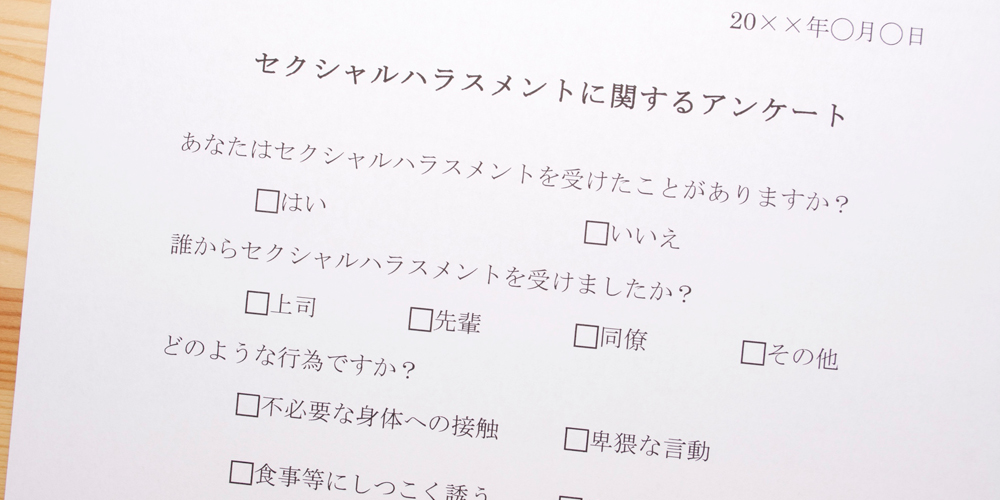 20××年〇月〇日
セクシャルハラスメントに関するアンケート
あなたはセクシャルハラスメントを受けたことがありますか？
□はい □いいえ
誰からセクシャルハラスメントを受けましたか？
□上司 □先輩 □同僚 □その他
どのような行為ですか？
□不必要な身体への接触 □卑猥な言動
□食事等にしつこく誘う